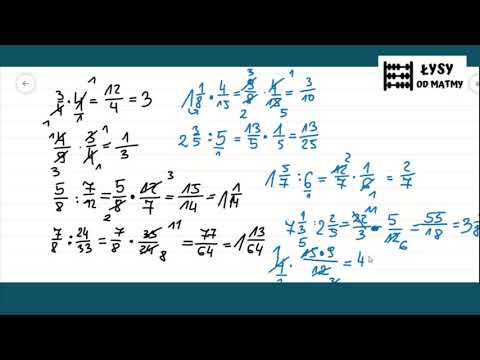 ŁYSY
OD MATMY
3/4 · 4/1 = 12/4 = 3
4/9 · 3/4 = 1/3
5/8 : 7/12 = 5/8 · 12/7 = 15/14 = 1 1/14
7/8 : 24/33 = 7/8 · 33/24 = 77/64 = 1 13/64
1 1/8 · 4/15 = 9/8 · 4/15 = 3/10
2 3/5 : 5/1 = 13/5 · 1/5 = 13/25
1 5/7 : 6/1 = 12/7 · 1/6 = 2/7
7 1/3 : 2 2/5 = 22/3 · 5/12 = 55/18 = 3
= 4